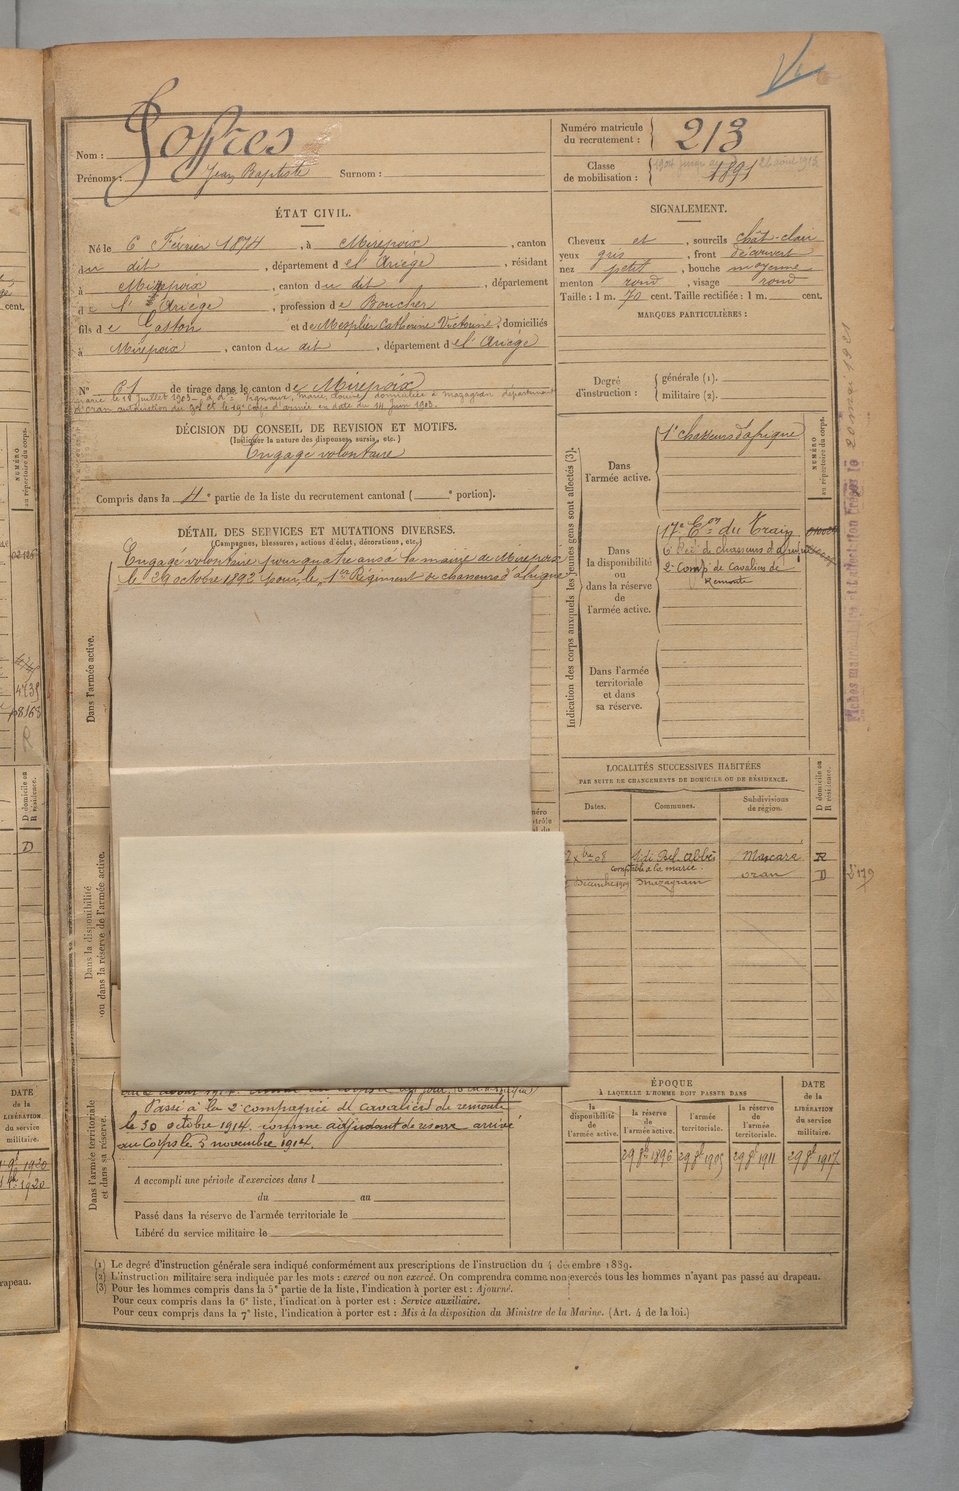 Nom : Soffres
Prénoms : Jean Baptiste Surnom :
Numéro matricule du recrutement : 213
Classe de mobilisation : 1891
ÉTAT CIVIL.
Né le 6 Février 1874, à Mirepoix, canton
du dit, département de l'Ariège, résidant
à Mirepoix, canton du dit, département
de l'Ariège, profession de Boucher
fils de Gaston et de Mesplier Catherine Victorine, domiciliés
à Mirepoix, canton du dit, département de l'Ariège
N° 61 de tirage dans le canton de Mirepoix
Marié le 18 Juillet 1903 à Mazagran département
d'Oran autorisation du Gal Ct le 19e Corps d'armée en date du 14 Juin 1903.
DÉCISION DU CONSEIL DE REVISION ET MOTIFS.
(Indiquer la nature des dispenses, sursis, etc.)
Engagé volontaire
Compris dans la 4e partie de la liste du recrutement cantonal ( e portion).
SIGNALEMENT.
Cheveux et, sourcils chât-clair
yeux gris, front découvert
nez petit, bouche moyenne
menton rond, visage rond
Taille : 1 m. 70 cent. Taille rectifiée : 1 m. cent.
MARQUES PARTICULIÈRES :
Degré d'instruction : générale (1).
militaire (2).
DÉTAIL DES SERVICES ET MUTATIONS DIVERSES.
(Campagnes, blessures, actions d'éclat, décorations, etc.)
Dans l'armée active.
Engagé volontaire pour quatre ans à la mairie de Mirepoix
le 29 octobre 1892 pour le 1er Régiment de chasseurs d'afrique
Dans la disponibilité
ou dans la réserve de l'armée active.
Dans l'armée territoriale
et dans sa réserve.
Passé à la 2e compagnie de cavaliers de remonte
le 30 octobre 1914. comme adjudant de réserve arrivé
au Corps le 5 novembre 1914.
A accompli une période d'exercices dans l
du au
Passé dans la réserve de l'armée territoriale le
Libéré du service militaire le
Indication des corps auxquels les jeunes gens sont affectés (3).
NUMÉRO au répertoire du corps.
Dans l'armée active.
1er chasseurs d'afrique
Dans la disponibilité ou dans la réserve de l'armée active.
17e Eon du Train
6e Régt de chasseurs d'afrique
2e Comp. de Cavaliers de
Remonte
Dans l'armée territoriale et dans sa réserve.
LOCALITÉS SUCCESSIVES HABITÉES
PAR SUITE DE CHANGEMENTS DE DOMICILE OU DE RÉSIDENCE.
Dates. Communes. Subdivisions de région. D domicile ou R résidence.
Sidi Bel abbès Mascara R
comptable à la mairie.
Décembre 1909 Mazagran Oran D
ÉPOQUE
À LAQUELLE L'HOMME DOIT PASSER DANS
la disponibilité de l'armée active.
la réserve de l'armée active.
l'armée territoriale.
la réserve de l'armée territoriale.
DATE de la LIBÉRATION du service militaire.
29 8bre 1896 29 8bre 1905 29 8bre 1911 29 8bre 1917
(1) Le degré d'instruction générale sera indiqué conformément aux prescriptions de l'instruction du 4 décembre 1889.
(2) L'instruction militaire sera indiquée par les mots : exercé ou non exercé. On comprendra comme non exercés tous les hommes n'ayant pas passé au drapeau.
(3) Pour les hommes compris dans la 5e partie de la liste, l'indication à porter est : Ajourné.
Pour ceux compris dans la 6e liste, l'indication à porter est : Service auxiliaire.
Pour ceux compris dans la 7e liste, l'indication à porter est : Mis à la disposition du Ministre de la Marine. (Art. 4 de la loi.)
20 mai 1921
cent.
D
DATE
de la
LIBÉRATION
du service
militaire.
1920
1920
drapeau.